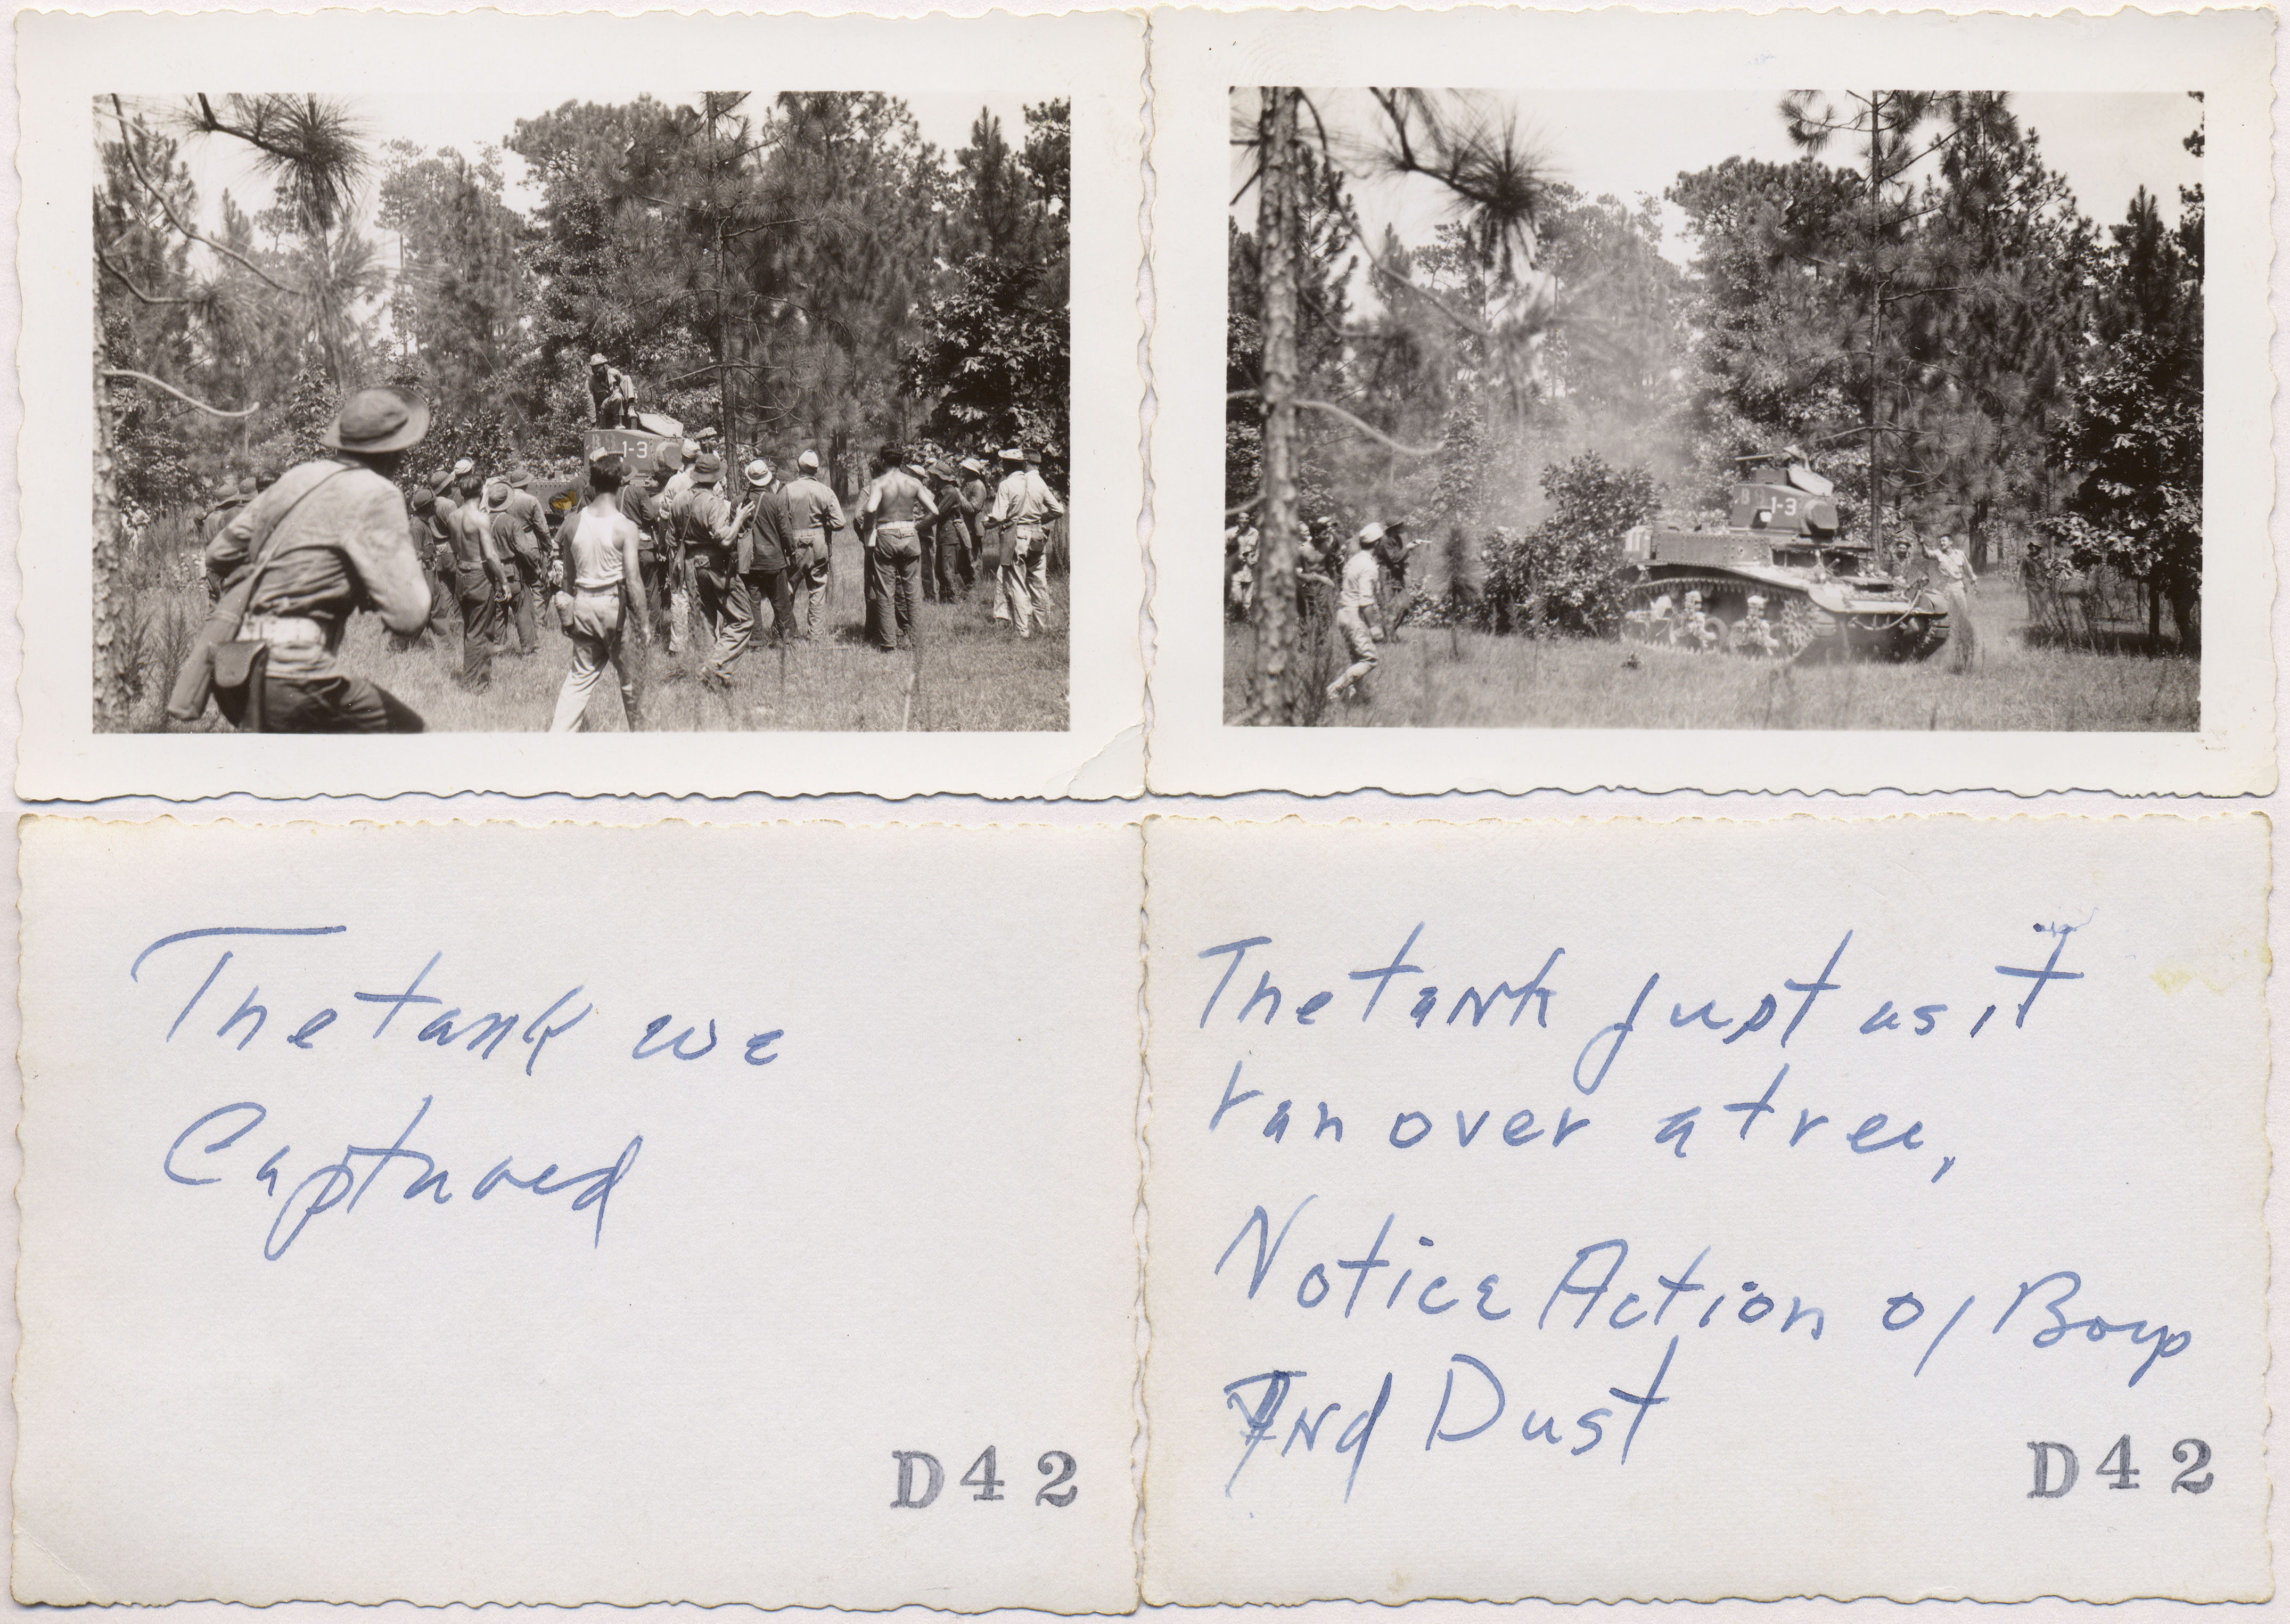 1-3
1-3
The tank we
Captured
D42
The tank just as it
ran over a tree,
Notice Action of Boys
And Dust
D42